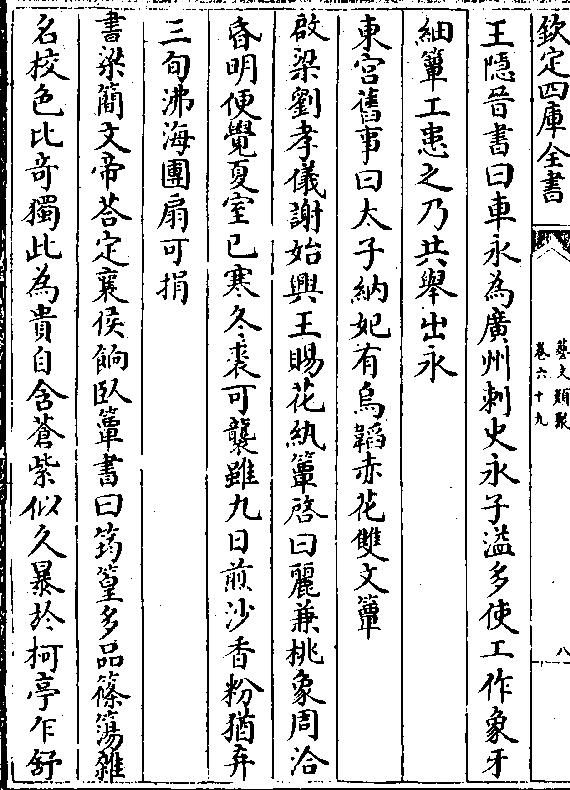 欽定四庫全書
藝文類聚
卷六十九
八
王隱晉書曰車永為廣州刺史永子溢多使工作象牙
細簟工患之乃共舉出永
東宮舊事曰太子納妃有烏韜赤花雙文簟
啟梁劉孝儀謝始興王賜花紈簟啓曰麗兼桃象周洽
昏明便覺夏室已寒冬裘可襲雖九日煎沙香粉猶弃
三旬沸海團扇可捐
書梁簡文帝荅定襄侯餉臥簟書曰筠篁多品篠簜雜
名校色比竒獨此為貴自含蒼紫似久暴於柯亭乍舒